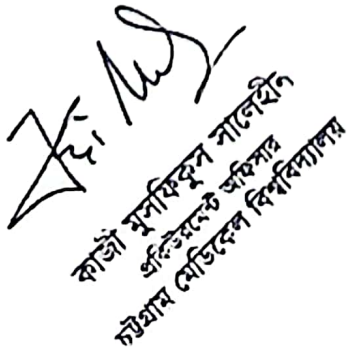 কাজী মুসফিকুস সালেহীন
প্রকিউরমেন্ট অফিসার
চট্টগ্রাম মেডিকেল বিশ্ববিদ্যালয়